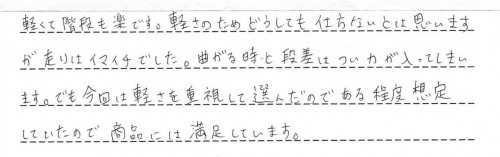 軽くて階段も楽です。軽さのためどうしても仕方ないとは思います
が走りはイマイチでした。曲がる時と段差はつい力が入ってしまい
ます。でも今回は軽さを重視して選んだのである程度想定
していたので商品には満足しています。